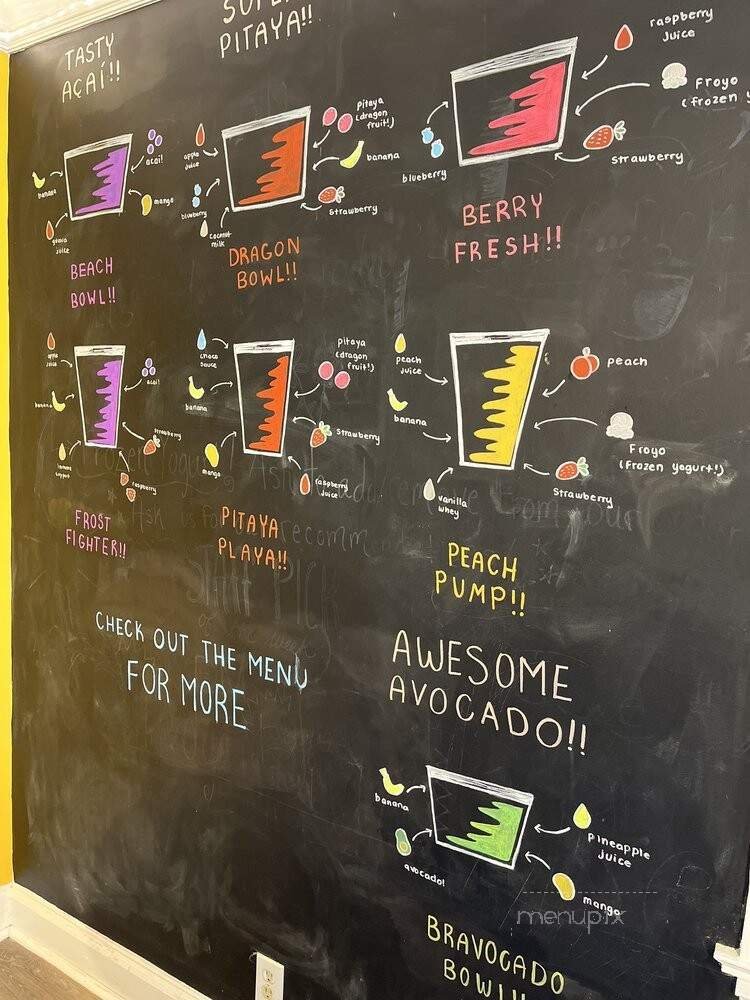 TASTY
AÇAÍ!!
acai!
banana
mango
guava
juice
BEACH
BOWL!!
PITAYA!!
apple
juice
pitaya
(dragon
fruit!)
banana
blueberry
strawberry
coconut
milk
DRAGON
BOWL!!
raspberry
juice
Froyo
(frozen
blueberry
strawberry
BERRY
FRESH!!
apple
juice
acai!
banana
strawberry
raspberry
FROST
FIGHTER!!
choco
sauce
pitaya
(dragon
fruit!)
banana
strawberry
mango
raspberry
juice
PITAYA
PLAYA!!
peach
juice
peach
banana
Froyo
(frozen yogurt!)
vanilla
whey
strawberry
PEACH
PUMP!!
CHECK OUT THE MENU
FOR MORE
AWESOME
AVOCADO!!
banana
pineapple
juice
avocado!
mango
menupix
BRAVOCADO
BOWL!!